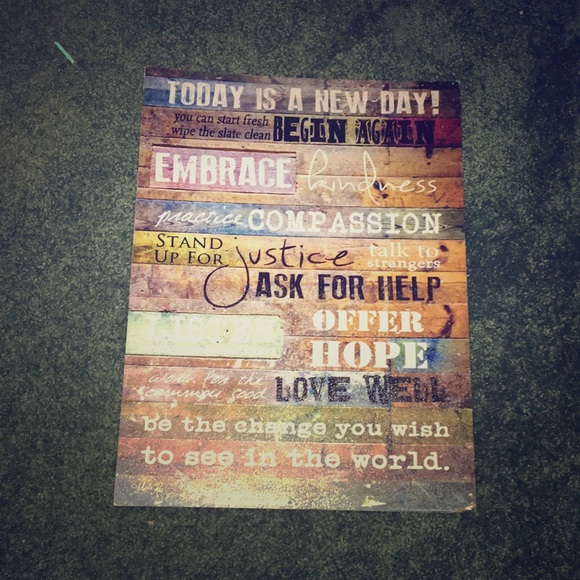 TODAY IS A NEW DAY!
you can start fresh
wipe the slate clean BEGIN AGAIN
EMBRACE kindness
practice COMPASSION
STAND UP FOR justice talk to strangers
ASK FOR HELP
LISTEN OFFER
HOPE
work for the common good LOVE WELL
be the change you wish
to see in the world.